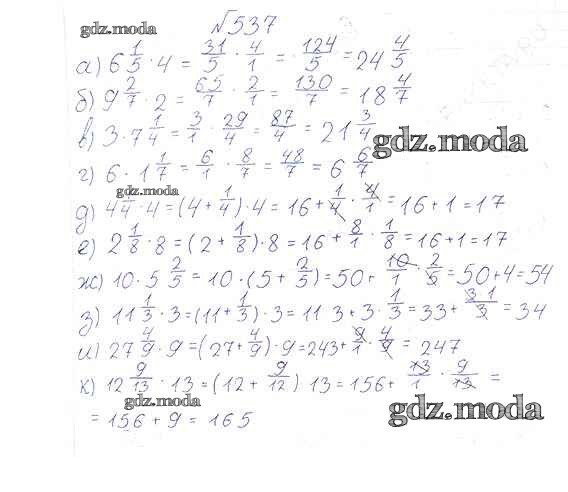 gdz.moda
№537
а) 6 1/5 · 4 = 31/5 · 4/1 = 124/5 = 24 4/5
б) 9 2/7 · 2 = 65/7 · 2/1 = 130/7 = 18 4/7
в) 3 · 7 1/4 = 3/1 · 29/4 = 87/4 = 21 3/4
gdz.moda
г) 6 · 1 1/7 = 6/1 · 8/7 = 48/7 = 6 6/7
gdz.moda
д) 4 1/4 · 4 = (4 + 1/4) · 4 = 16 + 1/4 · 4/1 = 16 + 1 = 17
е) 2 1/8 · 8 = (2 + 1/8) · 8 = 16 + 8/1 · 1/8 = 16 + 1 = 17
ж) 10 · 5 2/5 = 10 · (5 + 2/5) = 50 + 10/1 · 2/5 = 50 + 4 = 54
з) 11 1/3 · 3 = (11 + 1/3) · 3 = 11 3 + 3 · 1/3 = 33 + 3 1/3 = 34
и) 27 4/9 · 9 = (27 + 4/9) · 9 = 243 + 9/1 · 4/9 = 247
к) 12 9/13 · 13 = (12 + 9/12) 13 = 156 + 13/1 · 9/13 =
gdz.moda
= 156 + 9 = 165
gdz.moda